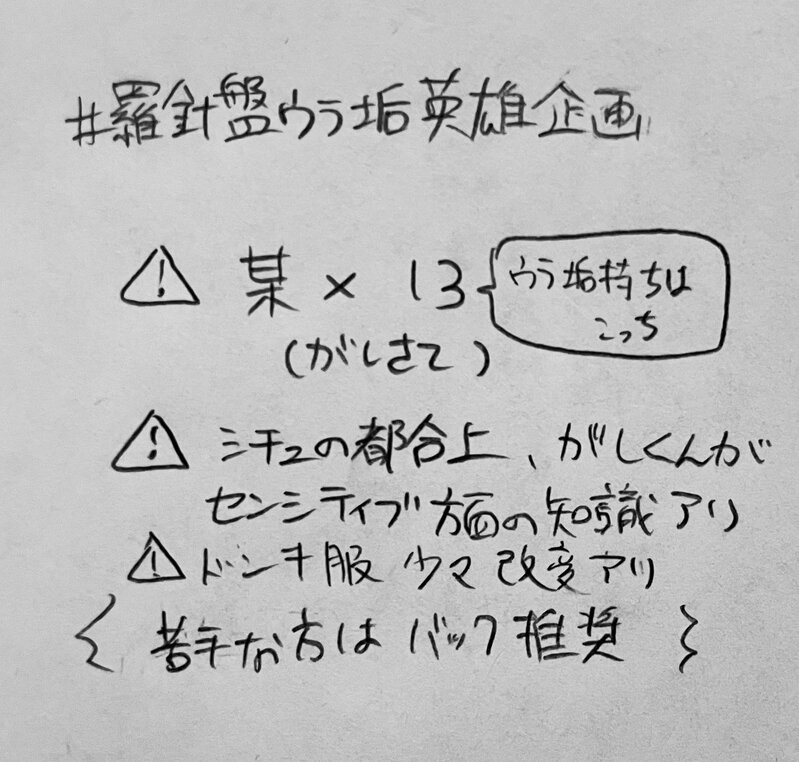 #羅針盤ウラ垢英雄企画
⚠ 某×13
ウラ垢持ちは
こっち
(がしさて)
⚠ シチュの都合上、がしくんが
センシティブ方面の知識アリ
⚠ ドンキ服 少々改変アリ
{ 苦手な方はバック推奨 }